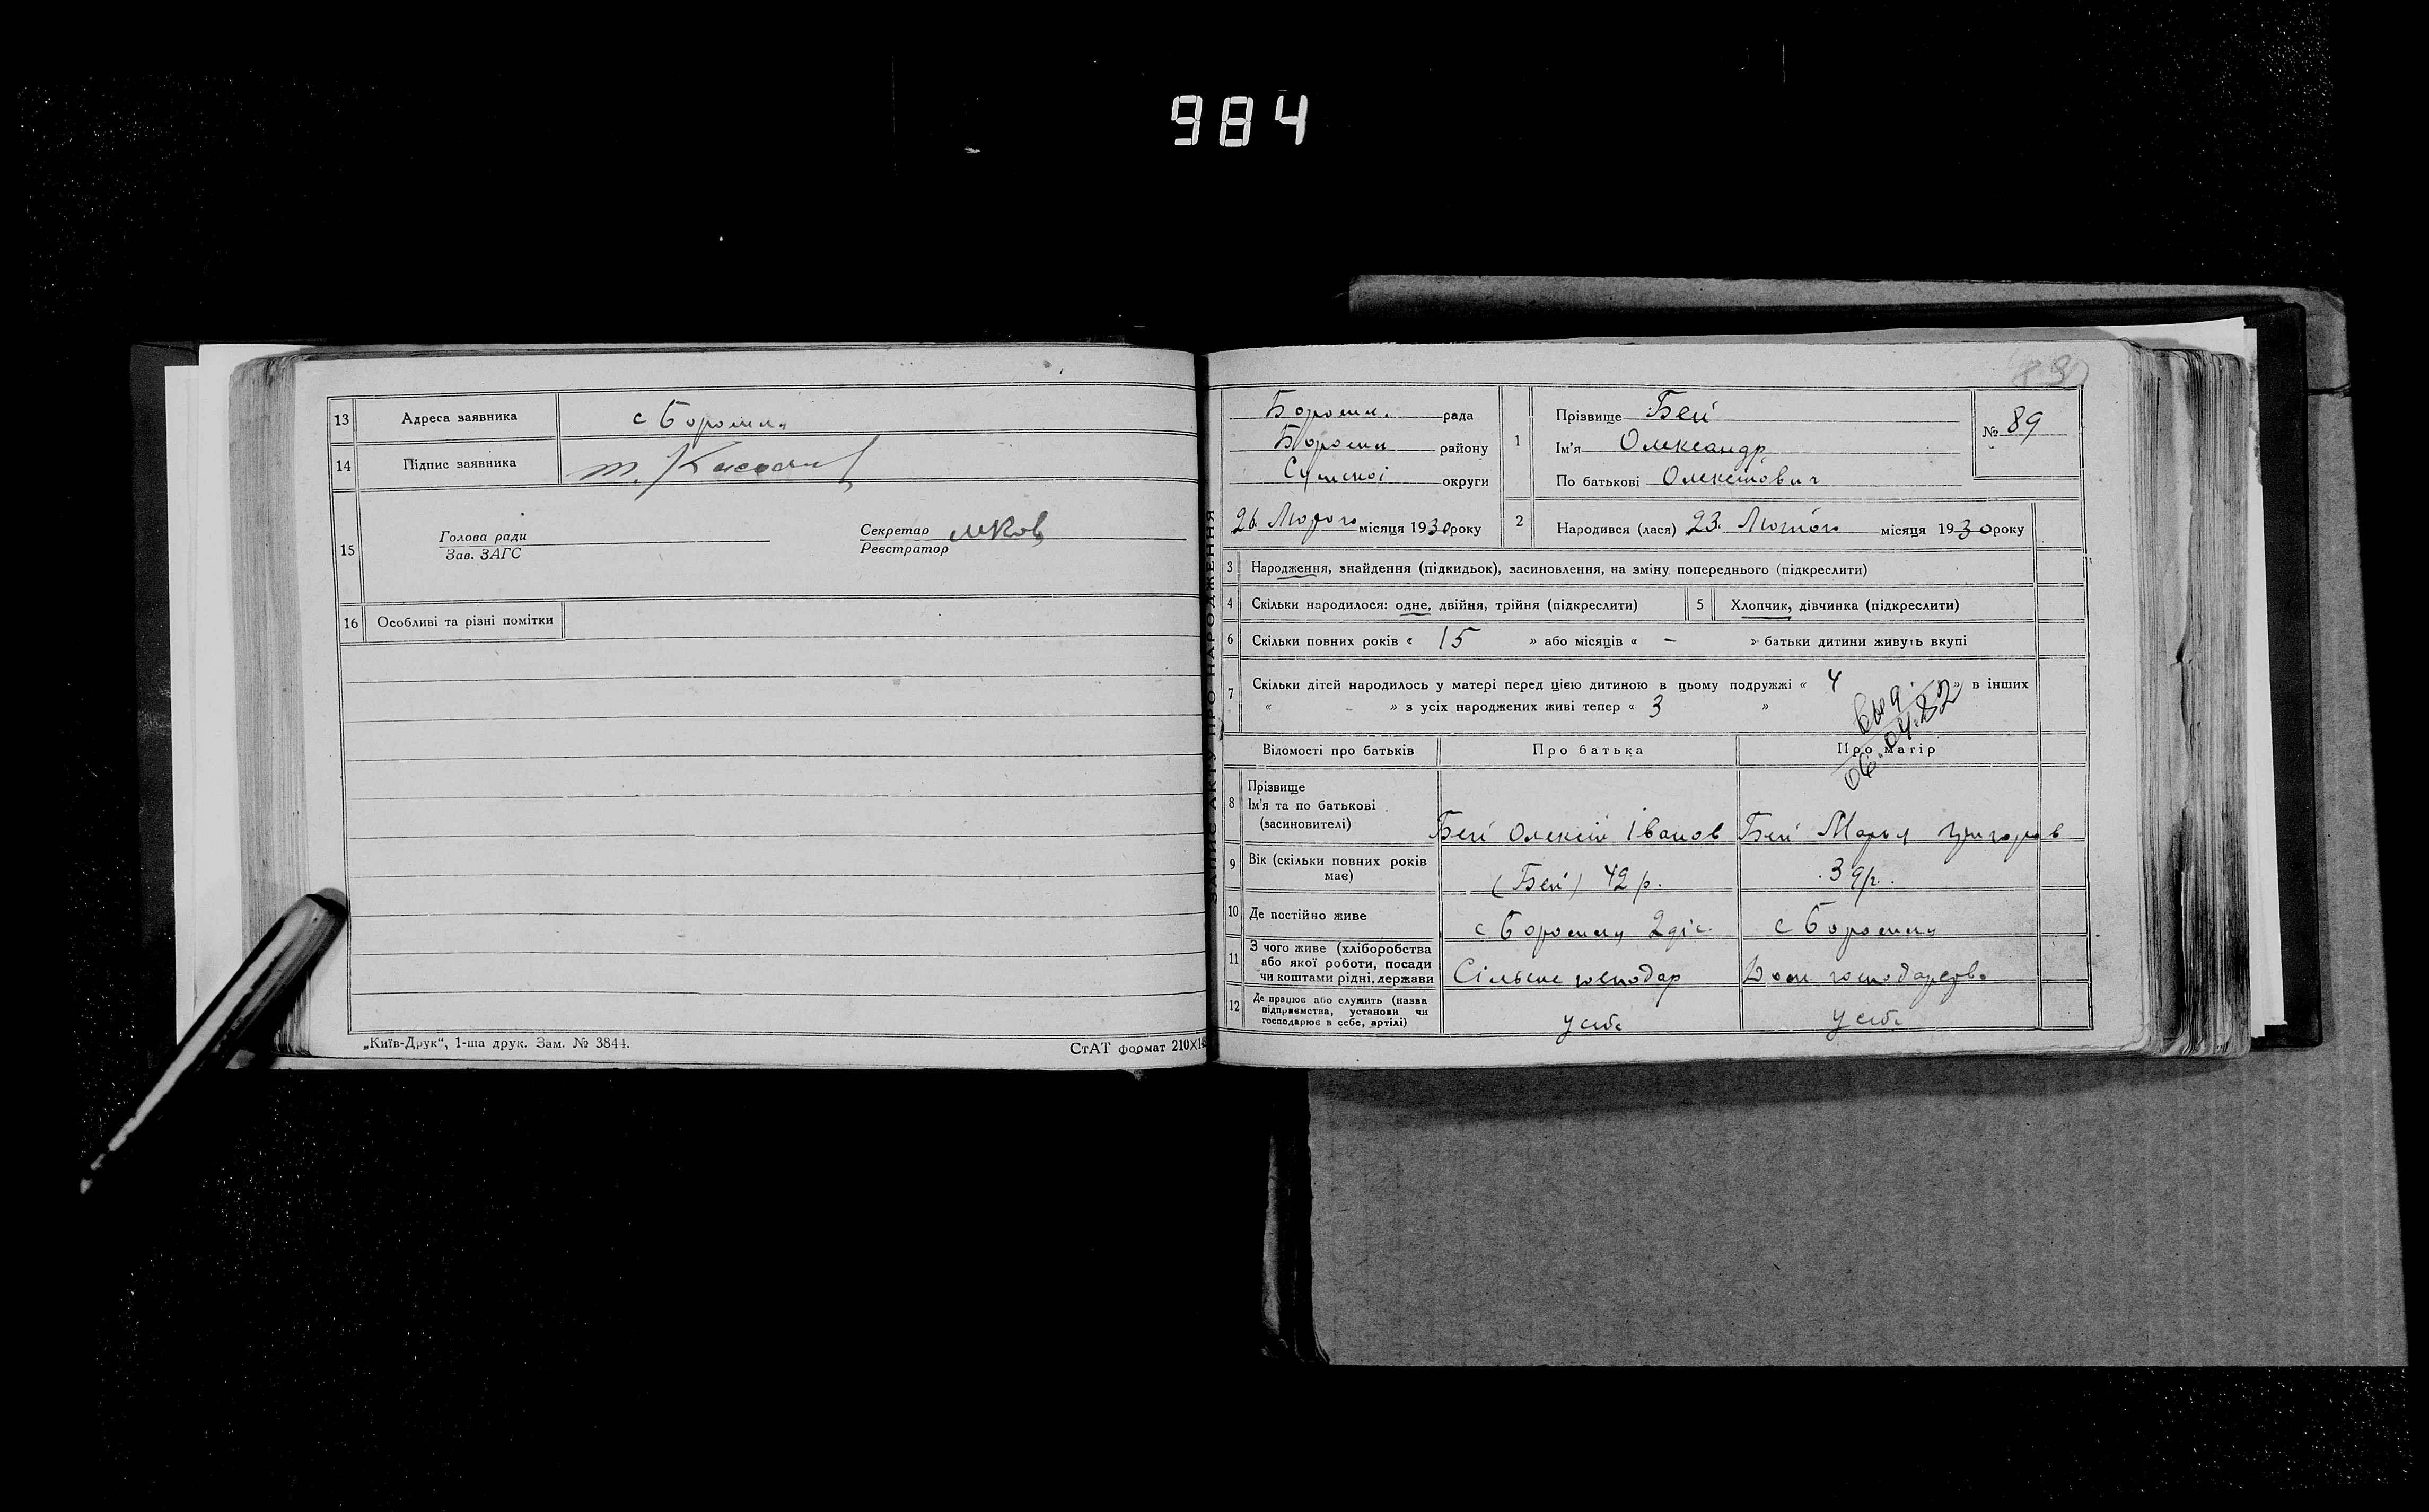 984
13 Адреса заявника с Боромля
14 Підпис заявника
15 Голова ради
Зав. ЗАГС
Секретар
Реєстратор
16 Особливі та різні помітки
„Київ-Друк“, 1-ша друк. Зам. № 3844.
СтАТ формат 210×14
ЗАПИС АКТУ ПРО НАРОДЖЕННЯ
89
Боромл. рада
Боромл району
Сумської округи
26 Лютого місяця 1930 року
1 Прізвище Бей
Ім'я Олександр
По батькові Олексійович
№ 89
2 Народився (лася) 23. Лютого місяця 1930 року
3 Народження, знайдення (підкидьок), засиновлення, на зміну попереднього (підкреслити)
4 Скільки народилося: одне, двійня, трійня (підкреслити) 5 Хлопчик, дівчинка (підкреслити)
6 Скільки повних років « 15 » або місяців « – » батьки дитини живуть вкупі
7 Скільки дітей народилось у матері перед цією дитиною в цьому подружжі « 4 » в інших
« - » з усіх народжених живі тепер « 3 »
Відомості про батьків Про батька Про матір
8 Прізвище
Ім'я та по батькові
(засиновителі)
Бей Олексій Іванов Бей Марья Григоров
9 Вік (скільки повних років має) (Бей) 42 р. 39 р.
10 Де постійно живе с Боромля 2 діс. с Боромля
11 З чого живе (хліборобства або якої роботи, посади чи коштами рідні, держави Сільське господар Дом господарство
12 Де працює або служить (назва підприємства, установи чи господарює в себе, артілі) у себе у себе